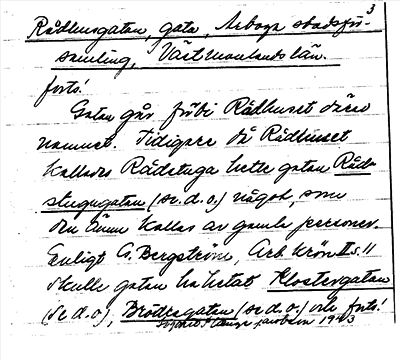 3
Rådhusgatan, gata, Arboga stadsför-
samling, Västmanlands län.
forts!
Gatan går förbi Rådhuset därav
namnet. Tidigare då Rådhuset
kallades Rådstuga hette gatan Råd-
stugugatan (se.d.o.) något, som
den ännu kallas av gamla personer.
Enligt G. Bergström, Arb. Krön II s. 11
skulle gatan ha hetat Klostergatan
(se d.o), Brödragatan (se d.o.) och forts!
1943